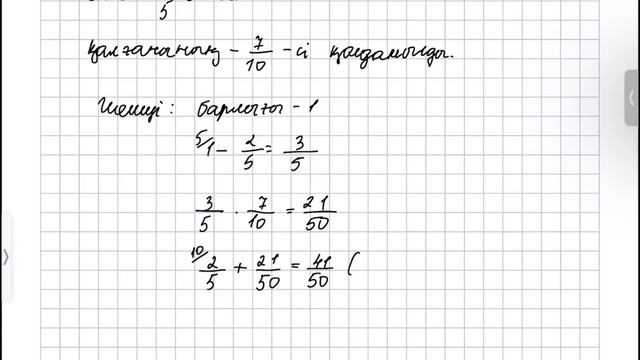 5
қалғанының - 7/10 - сі қолданылды.
Шешуі: барлығы - 1
5/1 - 2/5 = 3/5
3/5 · 7/10 = 21/50
10/ 2/5 + 21/50 = 41/50 (